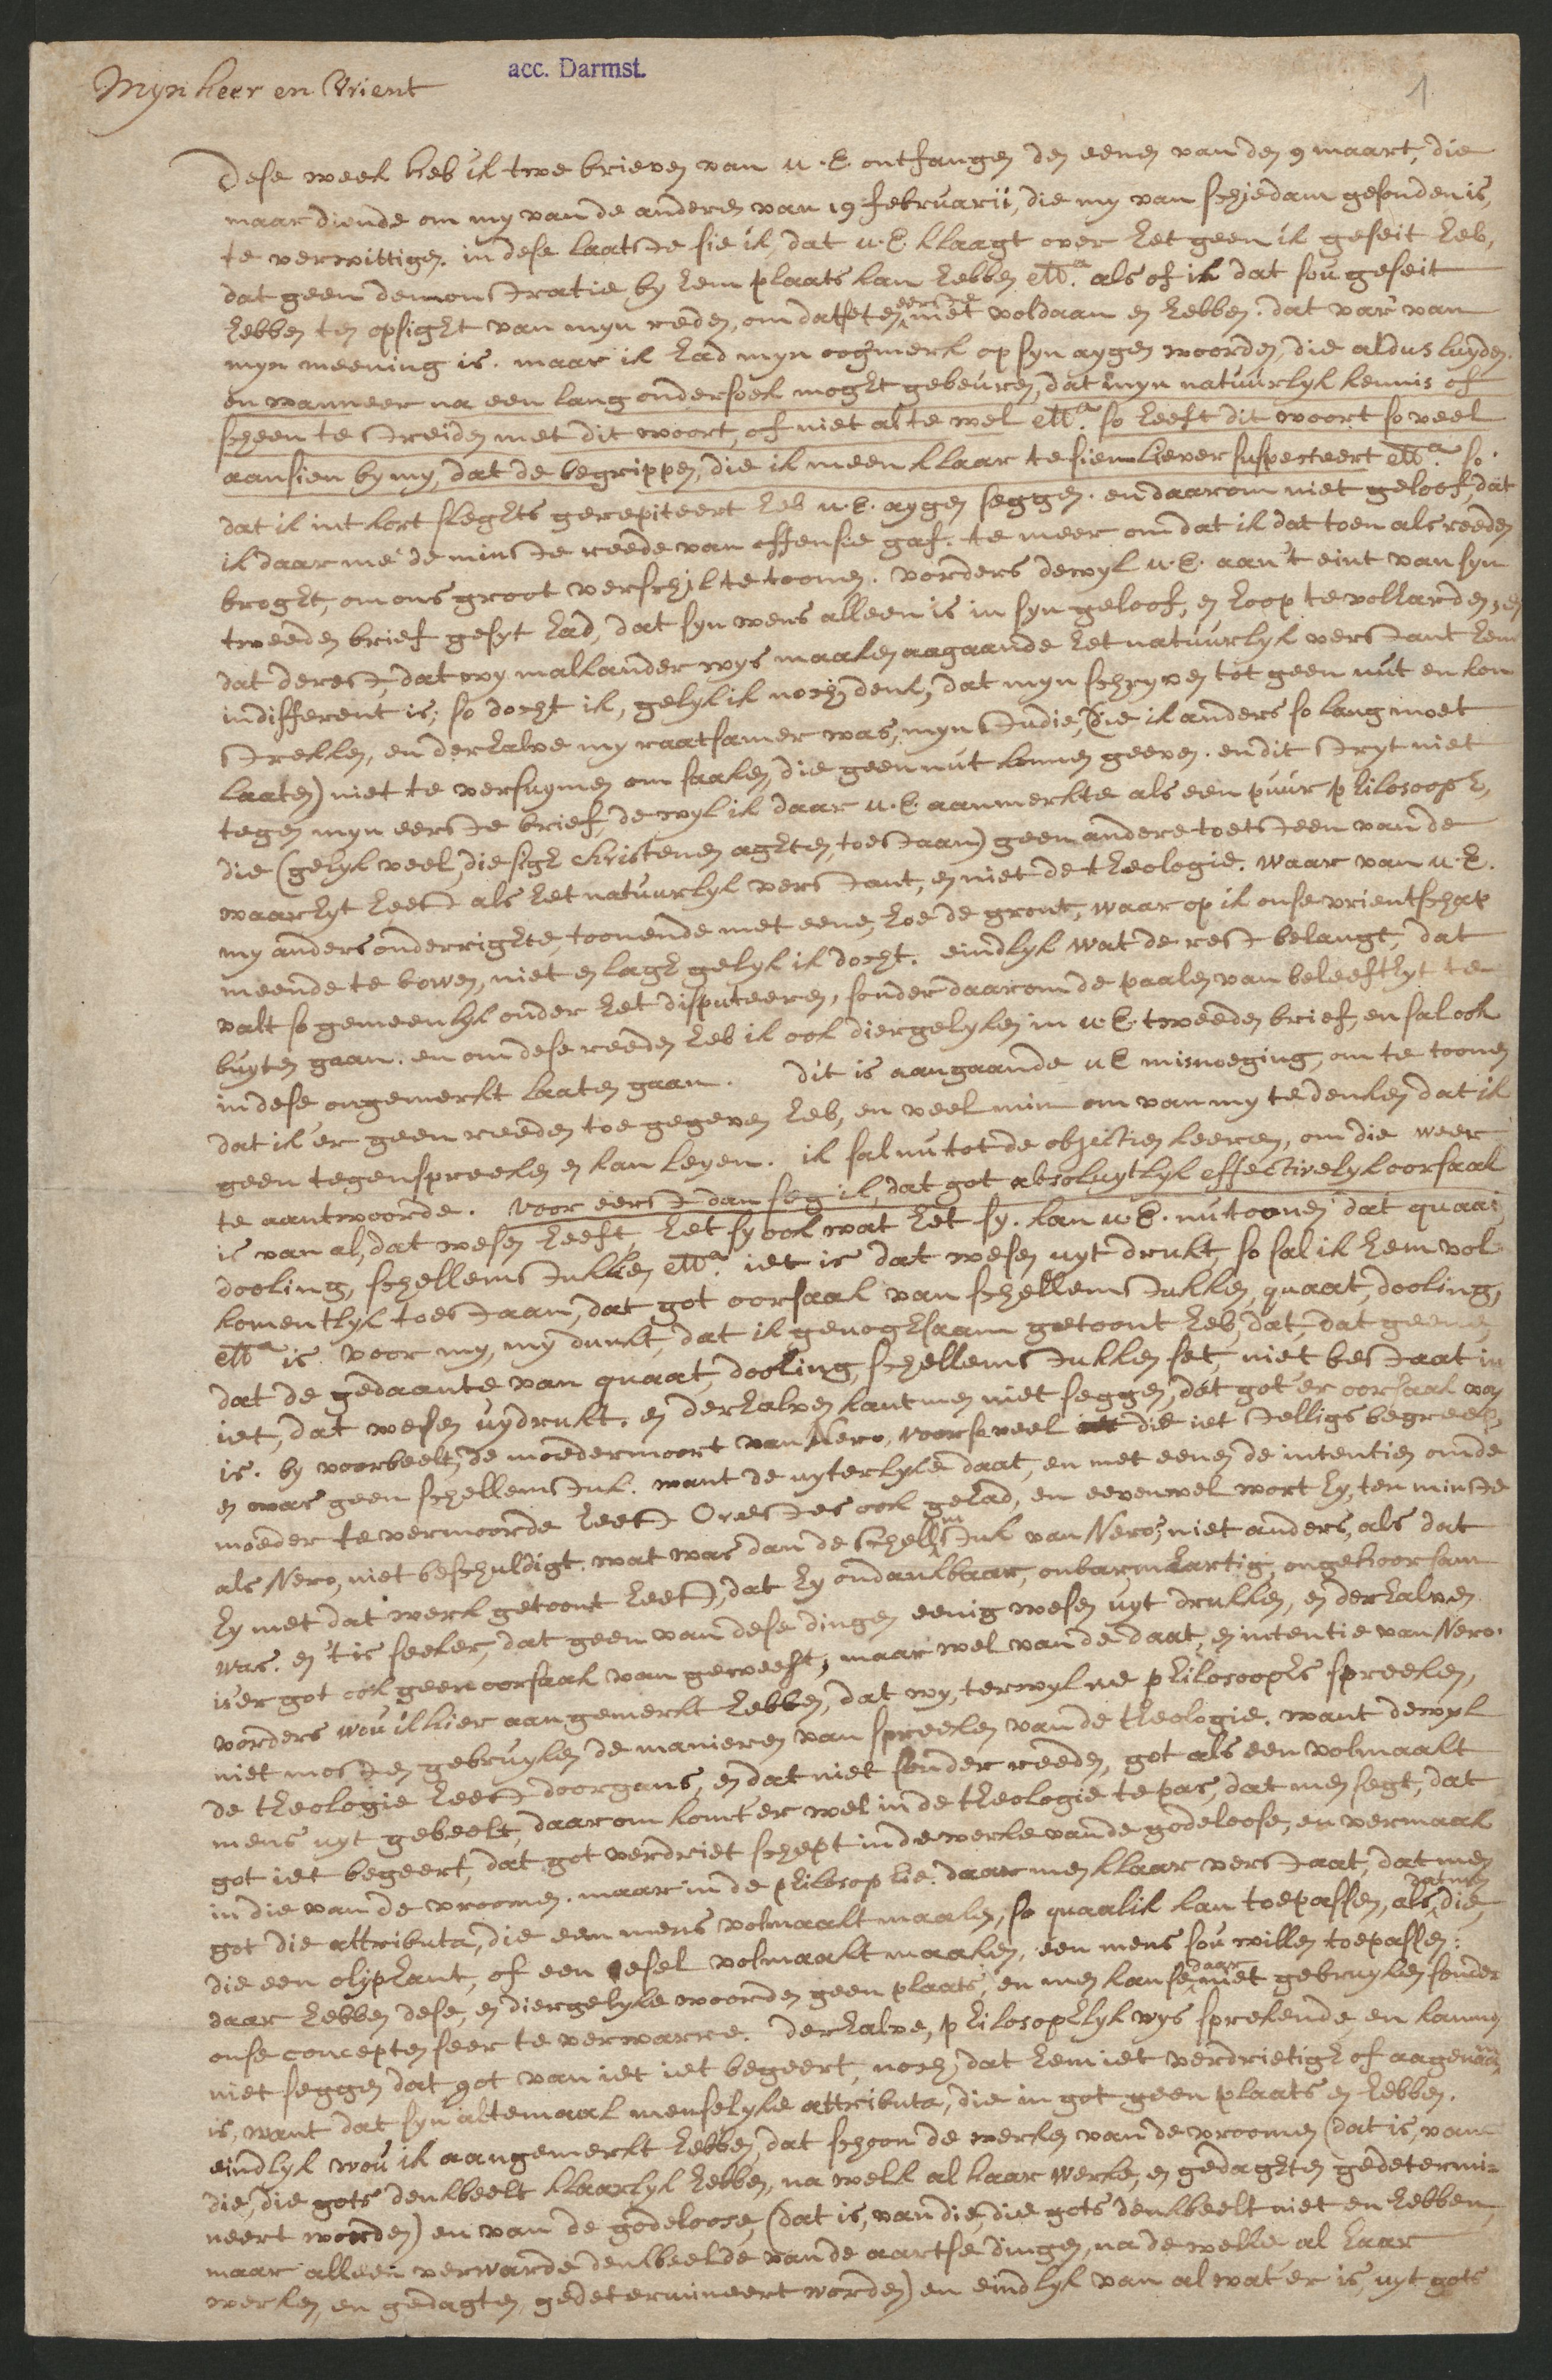 acc. Darmst.
1
Mynheer en Vrient
Dese week heb ik twe brieven van u.E. ontfangen den eenen van den 9 maart, die
maar diende om my van de anderen van 19 februarii, die my van schiedam gesonden is,
te verwittigen. in dese laatste sie ik dat u.E. klaagt over het geen ik geseit heb,
dat geen demonstratie by hem plaats kan hebben etc.a als of ik dat sou geseit
hebben ten opsight van myn reden, omdat se ten eerste niet voldaan en hebben. dat var van
myn meening is. maar ik had myn oogmerk op syn aygen woorden, die aldus luyden.
en wanneer na een lang ondersoek moght gebeuren, dat myn natuurlyk kennis of
scheen te streiden met dit woort, of niet al te wel etc.a so heeft dit woort so veel
aansien by my, dat de begrippen, die ik meen klaar te sien liever suspecteert etc.a so
dat ik int kort sleghts gerepiteert heb u.E. aygen seggen. en daarom niet geloof, dat
ik daar me de minste reede van offensie gaf. te meer om dat ik dat toen als reeden
broght, om ons groot verschil te toonen. vorders dewyl u.E. aan 't eint van syn
tweeden brief gesyt had, dat syn wens alleen is in syn geloof, en hoop te volharden, en
dat de rest, dat wy malkander wys maaken aagaande het natuurlyk verstant hem
indifferent is; so docht ik, gelyk ik noch denk, dat myn schryven tot geen nut en kon
strekken, en derhalve my raatsamer was, myn studie, (die ik anders so lang moet
laaten) niet te versuymen om saaken, die geen nut konnen geeven. en dit stryt niet
tegen myn eerste brief, dewyl ik daar u.E. aanmerkte als een puur philosooph,
die (gelyk veel, die sigh christenen aghten, toestaan) geen andere toetsteen van de
waarhyt heest als het natuurlyk verstant, en niet de theologie. waar van u.E.
my anders onderrighte, toonende met eene, hoe de gront, waar op ik onse vrientschap
meende te bowen, niet en lagh gelyk ik docht. eindlyk wat de rest belangt, dat
valt so gemeenlyk onder het disputeeren, sonder daarom de paalen van beleeftlyt te
buyten gaan. en om dese reeden heb ik ook diergelyken in u.E. tweeden brief, en sal ook
in dese ongemerkt laaten gaan. dit is aangaande u E misnoeging, om te toonen
dat ik 'er geen reeden toe gegeven heb, en veel min om van my te denken dat ik
geen tegenspreeken en kan leyen. ik sal nu tot de objectien keeren, om die weer
te aantwoorde. voor eerst dan seg ik, dat got absoluytlyk effectivelyk oorsaak
is van al, dat wesen heeft, het sy ook wat het sy. kan u.E. nu toonen dat quaat
dooling, schellemstukken etc.a iet is dat wesen uyt drukt, so sal ik hem vol
komentlyk toestaan, dat got oorsaak van schellemstukken, quaat, dooling,
etc.a is. voor my, my dunkt, dat ik genoghsaam getoont heb, dat, dat geene,
dat de gedaante van quaat, dooling, schellemstukken set, niet bestaat in
iet, dat wesen uydrukt. en derhalven kant men niet seggen, dat got 'er oorsaak van
is. by voorbeelt, de moedermoort van Nero, voor so veel die iet stelligs begreep,
en was geen schellemstuk. want de uyterlyke daat, en met eenen de intentien om de
moeder te vermoorde heest Orestes ook gehad, en eevenwel wort hy, ten minste
als Nero, niet beschuldigt. wat was dan de schellmstuk van Nero, niet anders, als dat
hy met dat werk getoont heest, dat hy ondankbaar, onbarmhartig, ongehoorsam
was. en 't is seeker, dat geen van dese dingen eenig wesen uyt drukken, en derhalven
is er got ook geen oorsaak van geweest, maar wel van de daat, en intentie van Nero.
vorders wou ik hier aangemerkt hebben, dat wy, terwyl we philosoophs spreeken,
niet mosten gebruyken de manieren van spreeken van de theologie. want dewyl
de theologie heest doorgans, en dat niet sonder reeden, got als een volmaakt
mens uyt gebeelt, daarom komt er wel in de theologie te pas, dat men segt, dat
got iet begeert, dat got verdriet schept in de werke van de godeloose, en vermaak
in die van de vroomen. maar in de philosophie daar men klaar verstaat, dat men
got die attributa, die een mens volmaakt maaken, so qualik kan toepassen, als dat men die,
die een olyphant, of een esel volmaakt maaken, een mens sou willen toepassen:
daar hebben dese, en diergelyke woorden geen plaats, en men kan se daar niet gebruyken sonder
onse concepten seer te verwarre. derhalve, philosophlyk wys sprekende, en kan men
niet seggen dat got van iet iet begeert, noch dat hem iet verdrietigh of aagenaam
is, want dat syn altemaal menselyke attributa, die in got geen plaats en hebben.
eindlyk wou ik aangemerkt hebben, dat schoon de werken van de vroomen (dat is, van
die, die gots denkbeelt klaarlyk hebben, na welk al haar werke, en gedaghten gedetermi-
neert worden) en van de godeloose, (dat is, van die, die gots denkbeelt niet en hebben,
maar alleen verwarde denkbeelde van de aartse dingen, na de welke al haar
werken, en gedagten gedetermineert worden) en eindlyk van al wat er is, uyt gots